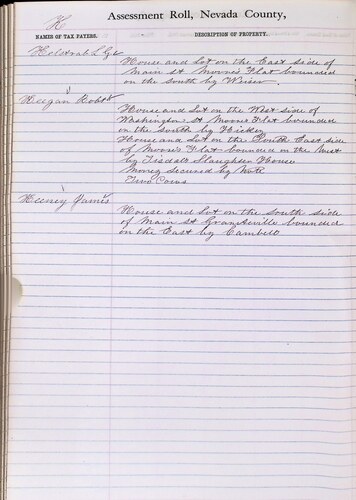 K
Assessment Roll, Nevada County,
NAMES OF TAX PAYERS.
DESCRIPTION OF PROPERTY.
House and Lot on the East side of
Main st Moores Flat bounded
on the South by Weiser
Keegan Robert
House and Lot on the West side of
Washington st Moores Flat bounded
on the South by Hickey
House and Lot on the South East side
of Moores Flat bounded on the West
by Tisdale Slaughter House
Money secured by Note
Two Cows
Keeney James
House and Lot on the South side
of Main st Graniteville bounded
on the East by Cambell